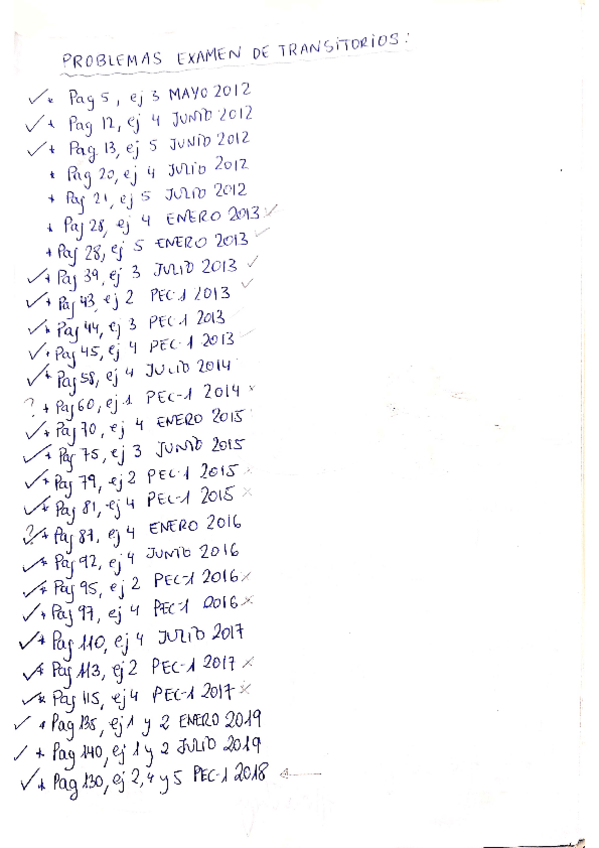 PROBLEMAS EXAMEN DE TRANSITORIOS:
✓ * Pag 5, ej 3 MAYO 2012
✓ * Pag 12, ej 4 JUNIO 2012
✓ * Pag 13, ej 5 JUNIO 2012
* Pag 20, ej 4 JULIO 2012
* Pag 21, ej 5 JULIO 2012
* Pag 28, ej 4 ENERO 2013 ✓
* Pag 28, ej 5 ENERO 2013 ✓
✓ * Pag 39, ej 3 JULIO 2013 ✓
✓ * Pag 43, ej 2 PEC-1 2013 ✓
✓ * Pag 44, ej 3 PEC-1 2013
✓ * Pag 45, ej 4 PEC-1 2013
✓ * Pag 58, ej 4 JULIO 2014
? * Pag 60, ej 1 PEC-1 2014 ×
✓ * Pag 70, ej 4 ENERO 2015
✓ * Pag 75, ej 3 JUNIO 2015
✓ * Pag 79, ej 2 PEC-1 2015 ×
✓ * Pag 81, ej 4 PEC-1 2015 ×
? * Pag 87, ej 4 ENERO 2016
✓ * Pag 92, ej 4 JUNIO 2016
✓ * Pag 95, ej 2 PEC-1 2016 ×
✓ * Pag 97, ej 4 PEC-1 2016 ×
✓ * Pag 110, ej 4 JULIO 2017
✓ * Pag 113, ej 2 PEC-1 2017 ×
✓ * Pag 115, ej 4 PEC-1 2017 ×
✓ * Pag 135, ej 1 y 2 ENERO 2019
✓ * Pag 140, ej 1 y 2 JULIO 2019
✓ * Pag 130, ej 2, 4 y 5 PEC-1 2018 ←